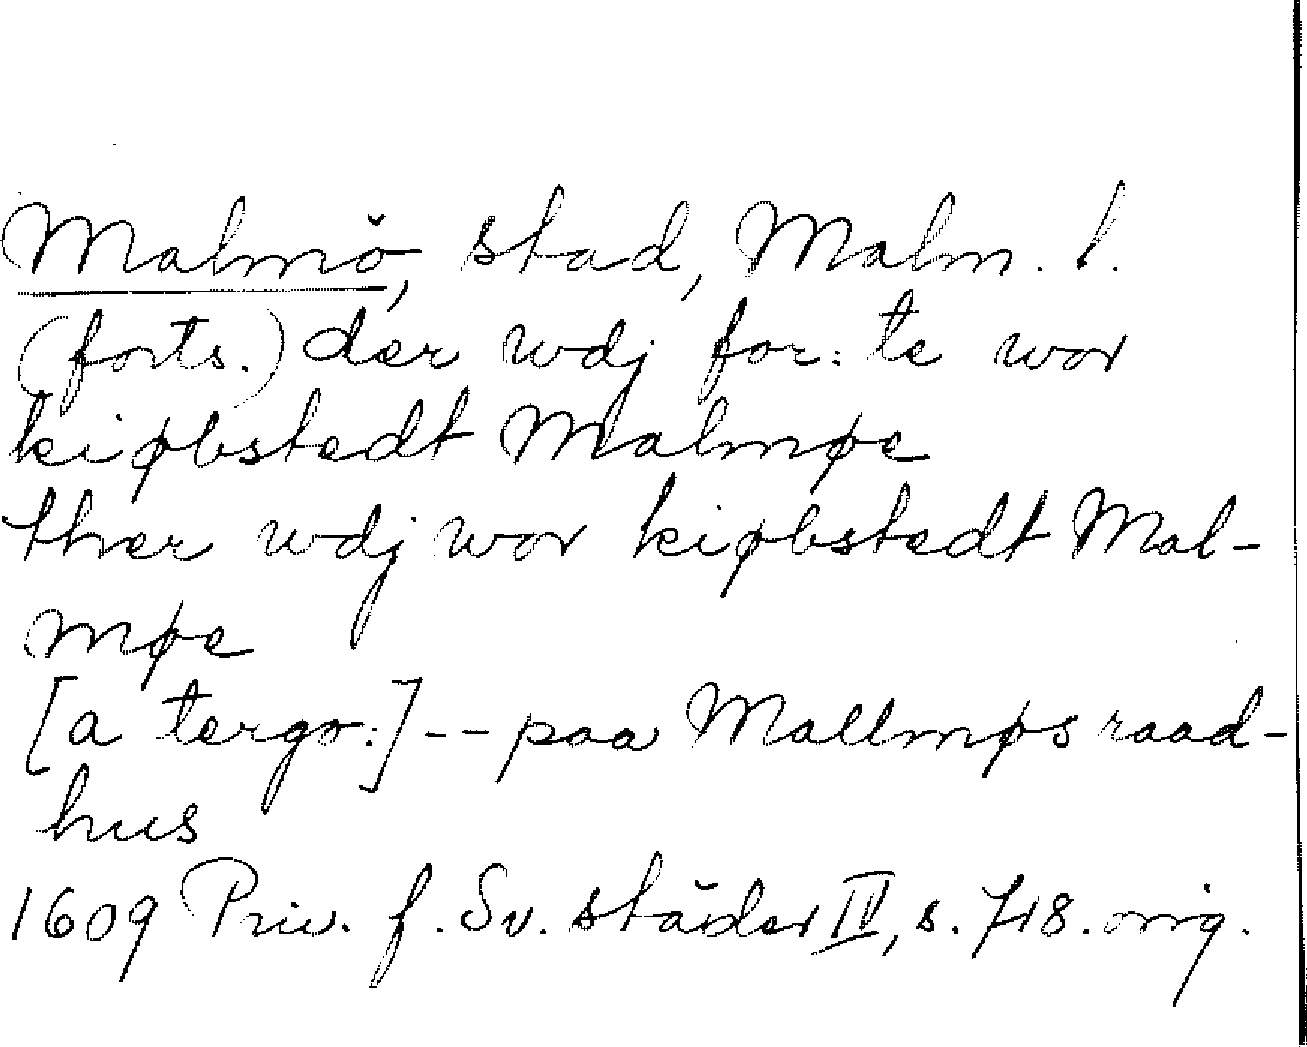 Malmö, stad, Malm. l.
(forts.) der wdj for: te wor
kiøbstedt Malmøe
ther wdj wor kiøbstedt Mal-
møe
[a tergo:] -- paa Mallmøs raad-
hus
1609 Priv. f. Sv. städer IV, s. 718. orig.